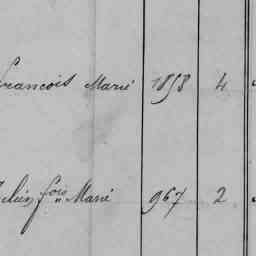 francois Marie 1858 4
fois Marie 967 2